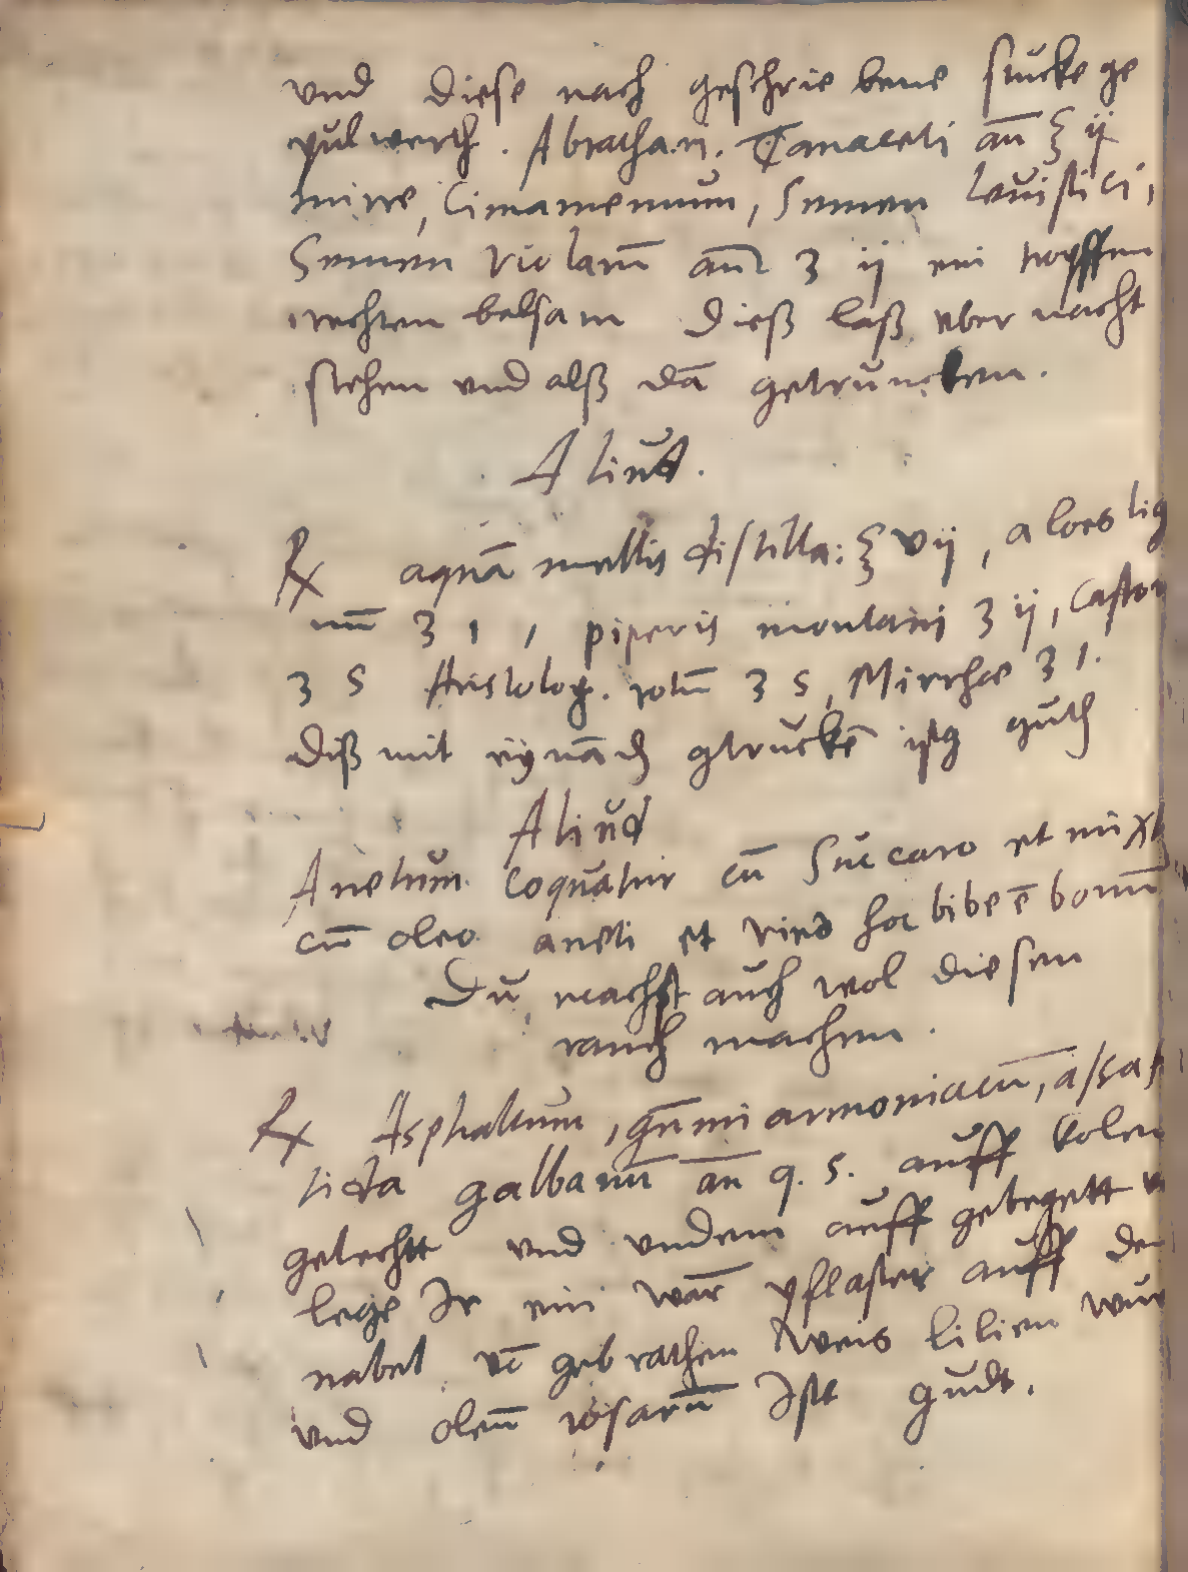 vnd diese nach geschrie bene stucke ge
pulwerth. Abrathani. Tanaceti an̄ ℥ ij
mirre, Cimamemum, Semen levistici,
Semen violarū an̄ ʒ ij ein tropffen
rechten balsam dieß laß vber nacht
stehen vnd alß dā getruncken.
Aliud.
℞ aquā mellis distilla: ℥ vij, aloes lig
nū ʒ 1, piperis montani ʒ ij, Castor
ʒ s Aristolog. rotū ʒ s, Mirrhae ʒ 1.
diß mit eynād gtruckē guth
Aliud
Anetum coquatur cū Succaro et mixt
cū oleo aneti et hoc bibe ē bonū
Du machst auch wol diesen
rauch machen.
℞ Asphaltum, gūmi armoniacū, assafe
tida galbanū an̄ q. s. auff kolen
gelechtt vnd vndem auff
lege Ir ein warm pflaster auff den
nabel vō gebrathen weis lilien wur
vnd oleū rosarū Ist gudt.